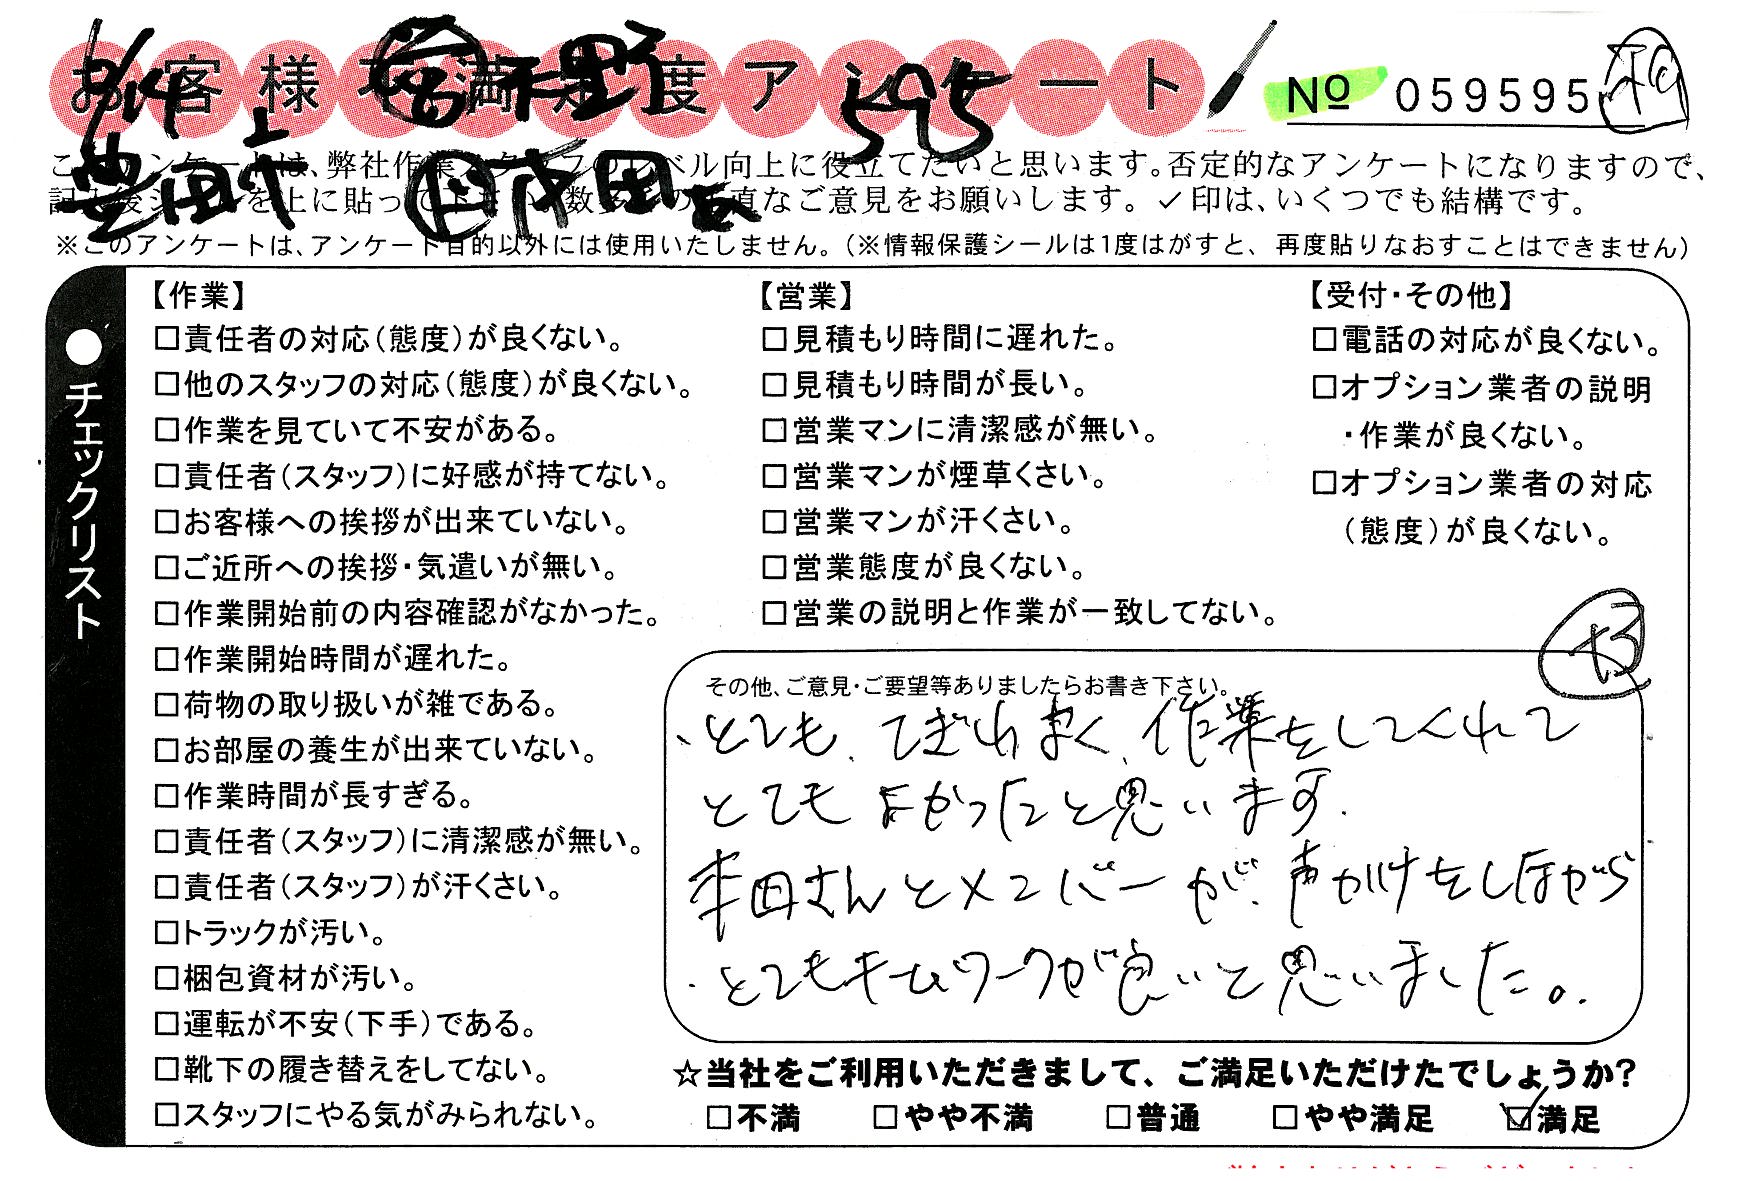 お客様不満足度アンケート
No 059595
5595
このアンケートは、弊社作業スタッフのレベル向上に役立てたいと思います。否定的なアンケートになりますので、
記入後シールを上に貼って下さい。数多くの正直なご意見をお願いします。✓印は、いくつでも結構です。
※このアンケートは、アンケート目的以外には使用いたしません。(※情報保護シールは1度はがすと、再度貼りなおすことはできません)
●チェックリスト
【作業】
□責任者の対応(態度)が良くない。
□他のスタッフの対応(態度)が良くない。
□作業を見ていて不安がある。
□責任者(スタッフ)に好感が持てない。
□お客様への挨拶が出来ていない。
□ご近所への挨拶・気遣いが無い。
□作業開始前の内容確認がなかった。
□作業開始時間が遅れた。
□荷物の取り扱いが雑である。
□お部屋の養生が出来ていない。
□作業時間が長すぎる。
□責任者(スタッフ)に清潔感が無い。
□責任者(スタッフ)が汗くさい。
□トラックが汚い。
□梱包資材が汚い。
□運転が不安(下手)である。
□靴下の履き替えをしてない。
□スタッフにやる気がみられない。
【営業】
□見積もり時間に遅れた。
□見積もり時間が長い。
□営業マンに清潔感が無い。
□営業マンが煙草くさい。
□営業マンが汗くさい。
□営業態度が良くない。
□営業の説明と作業が一致してない。
【受付・その他】
□電話の対応が良くない。
□オプション業者の説明
・作業が良くない。
□オプション業者の対応
(態度)が良くない。
その他、ご意見・ご要望等ありましたらお書き下さい。
、とても、てぎわ良く、作業をしてくれて
とても よかったと思います.
本田さんとメンバーが、声かけをしながら
・とてもチームワークが良いと思いました。
☆当社をご利用いただきまして、ご満足いただけたでしょうか?
□不満 □やや不満 □普通 □やや満足 ☑満足